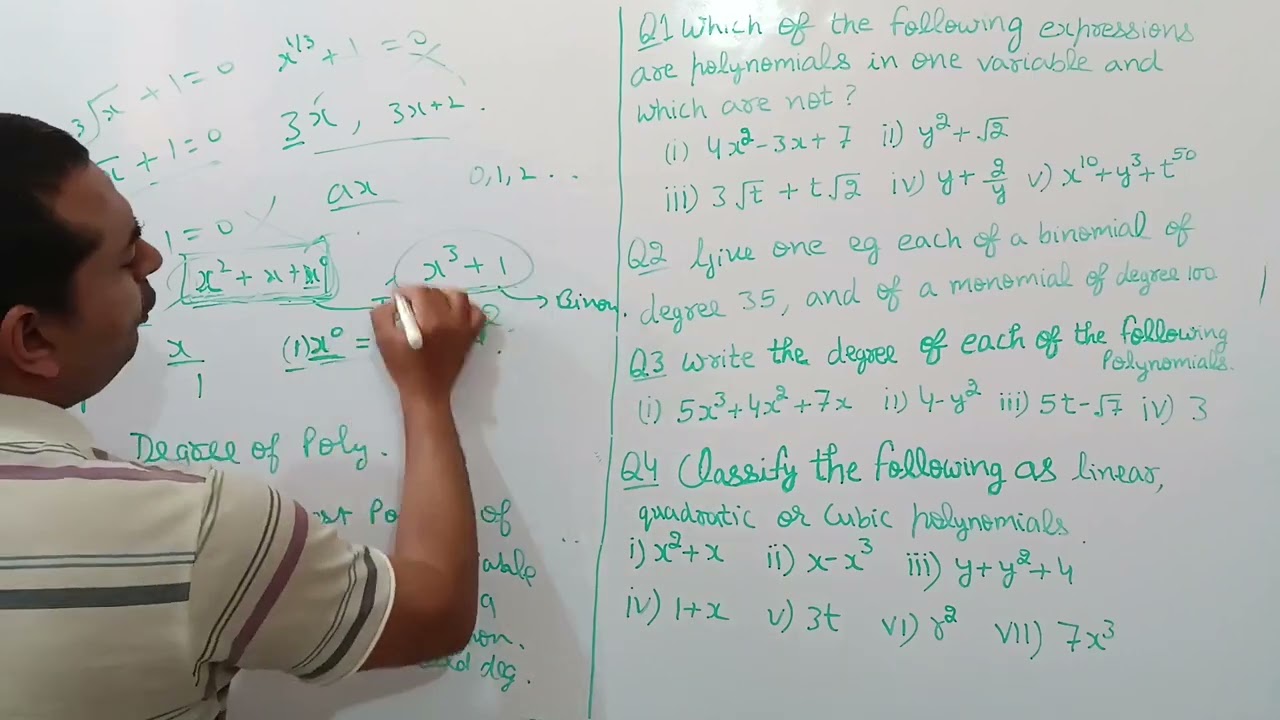 ∛x + 1 = 0
x^1/3 + 1 = 0
+ 1 = 0
3x , 3x+2 .
ax
0,1,2 ...
1 = 0
x² + x + x⁰
x³ + 1
Binom.
x
1
(1)x⁰ =
Degree of Poly.
of
deg.
Q1 Which of the following expressions
are polynomials in one variable and
which are not?
(i) 4x²-3x+7 ii) y²+√2
iii) 3√t + t√2 iv) y + 2/y v) x¹⁰+y³+t⁵⁰
Q2 Give one eg each of a binomial of
degree 35, and of a monomial of degree 100
Q3 Write the degree of each of the following
Polynomials.
(i) 5x³+4x²+7x ii) 4-y² iii) 5t-√7 iv) 3
Q4 Classify the following as linear,
quadratic or Cubic polynomials.
i) x²+x ii) x-x³ iii) y+y²+4
iv) 1+x v) 3t vi) r² vii) 7x³